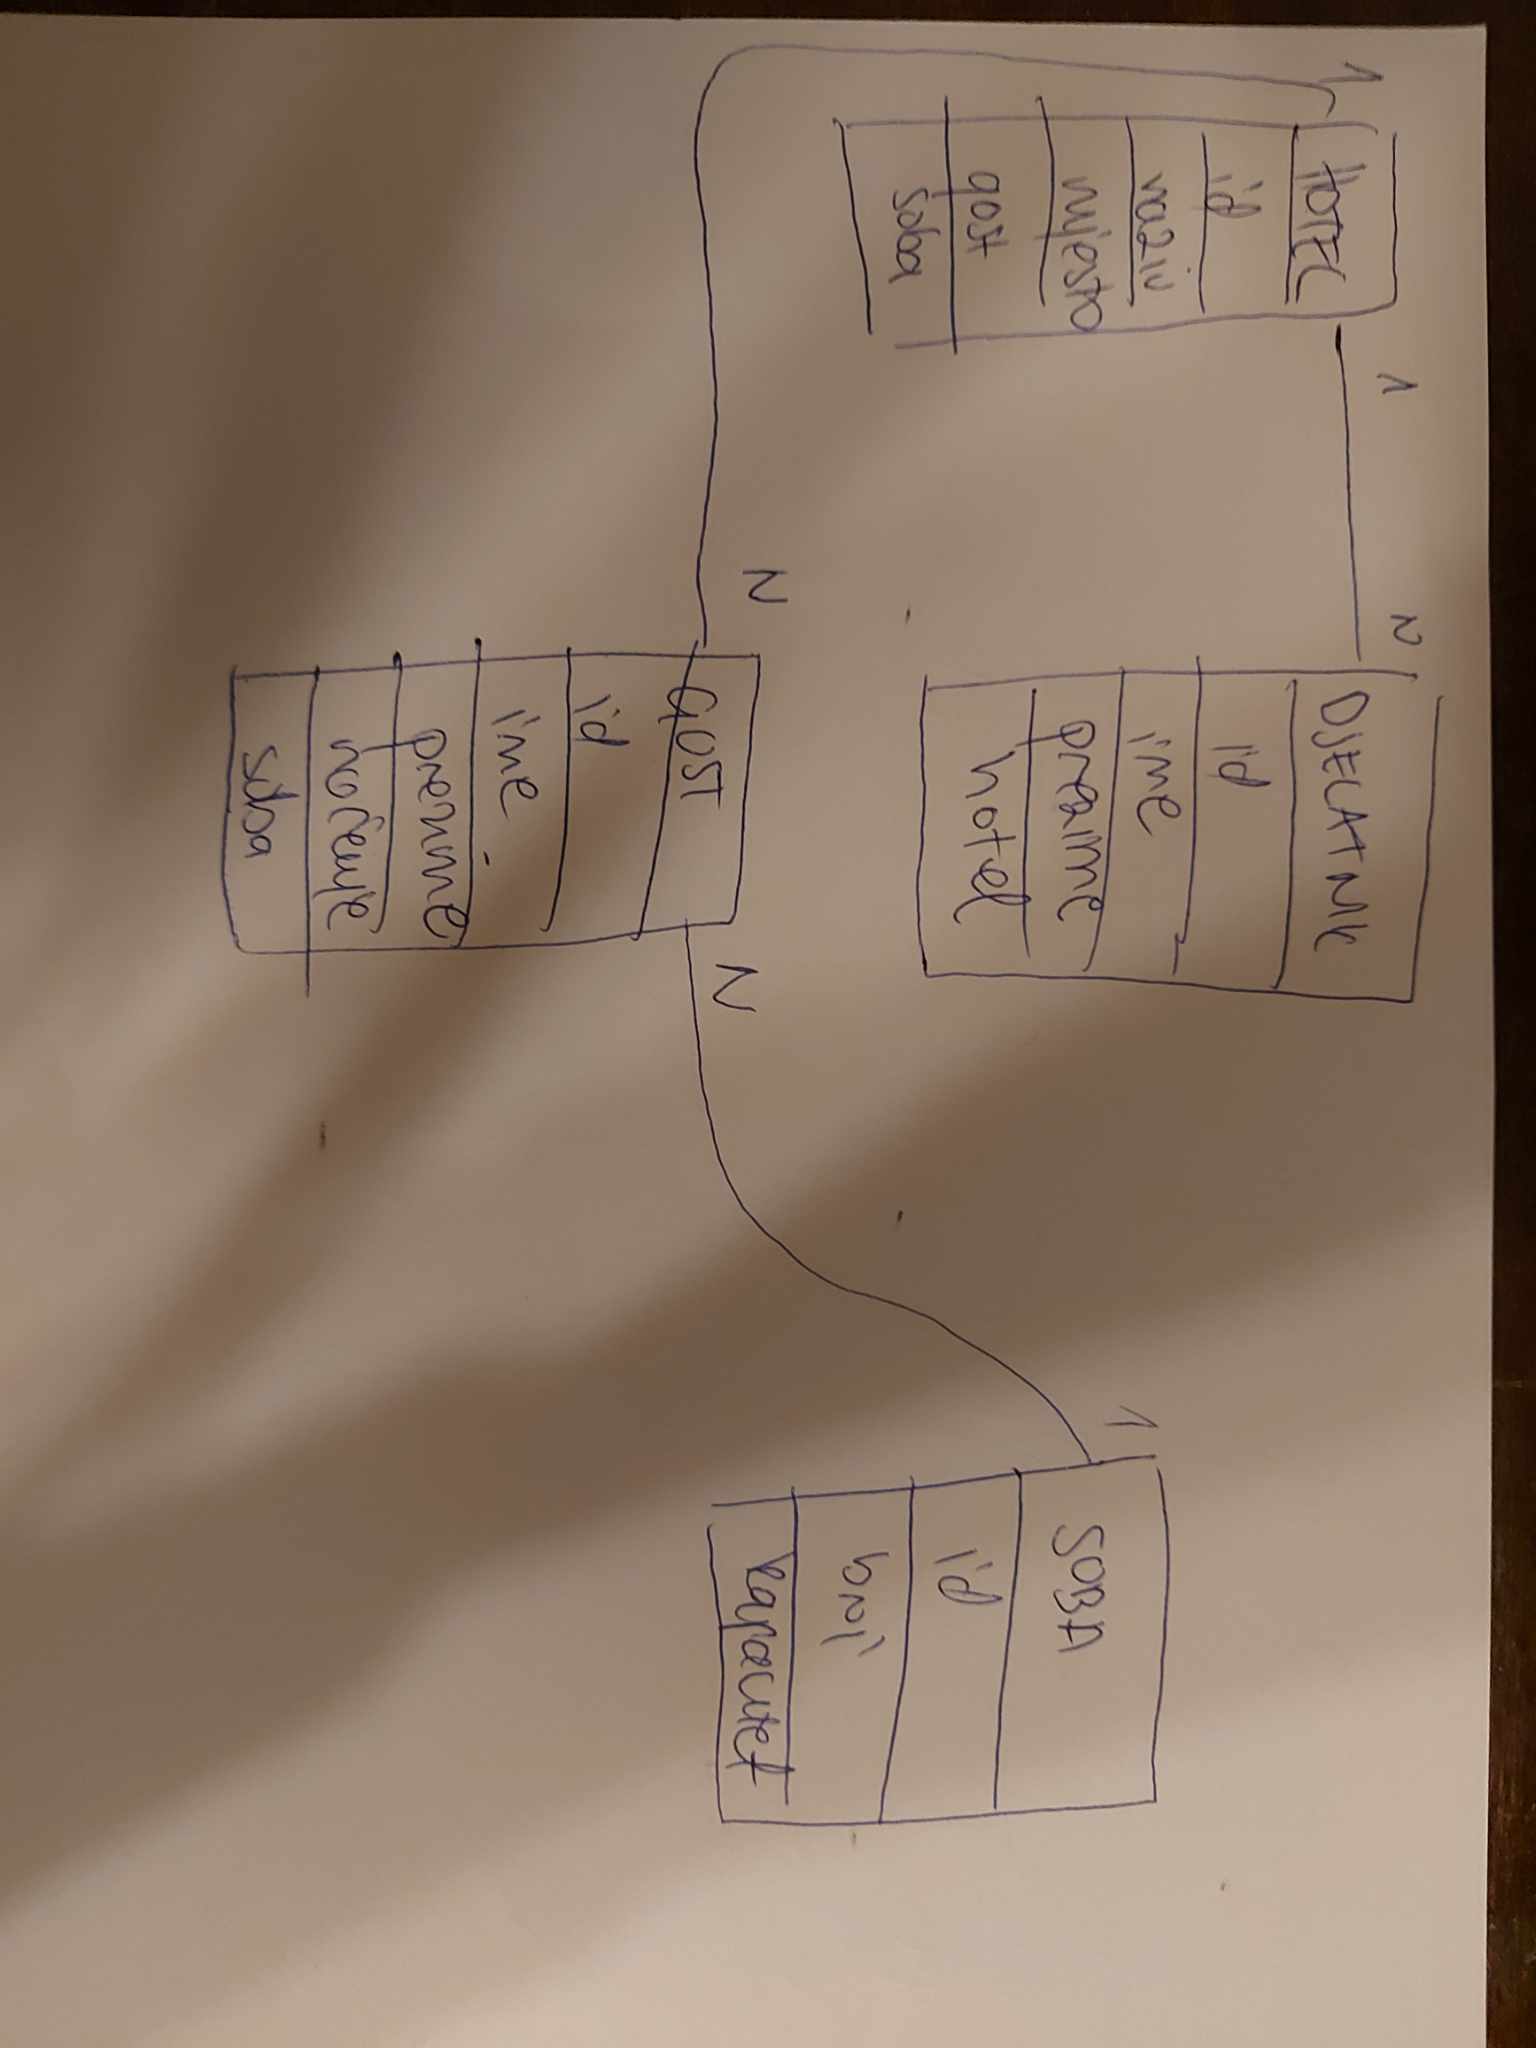 1
HOTEL
id
naziv
mjesto
gost
soba
1
N
DJELATNIK
id
ime
prezime
hotel
1
SOBA
id
broj
kapacitet
N
GOST
N
id
ime
prezime
noćenje
soba